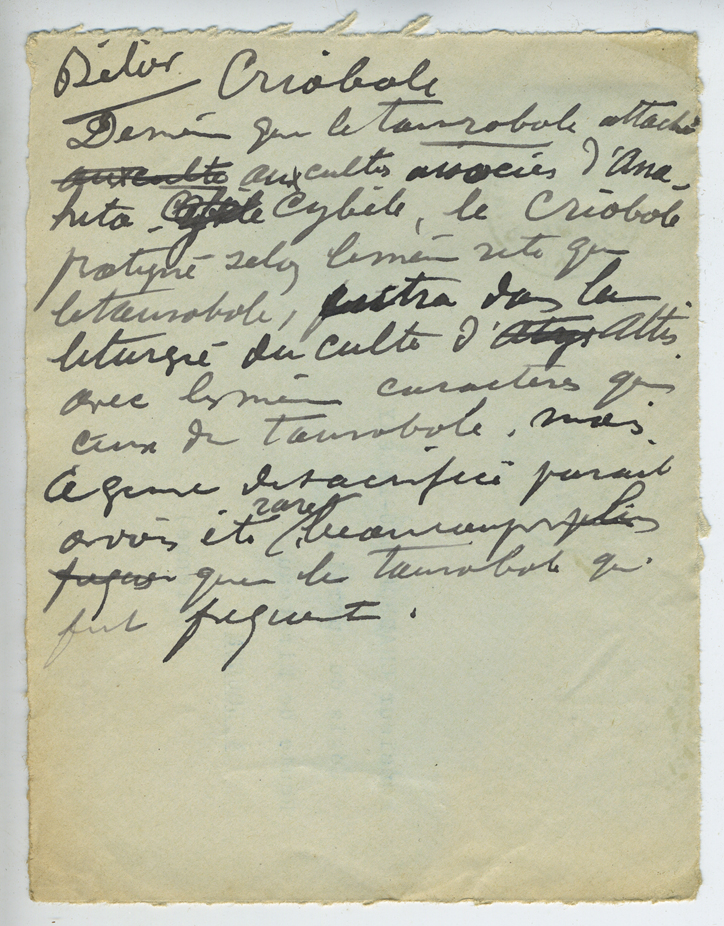 Bélier Criobole
De même que le taurobole attaché
aux culte aux cultes associés d'Ana-
hita, Cybèle Cybèle, le Criobole
pratiqué selon le même rite que
le taurobole, entra dans la
liturgie du culte d'Atys Attis
avec les mêmes caractères que
ceux du taurobole, mais
ce genre de sacrifice parait
avoir été rare beaucoup plus
que le taurobole qui
fut fréquent.